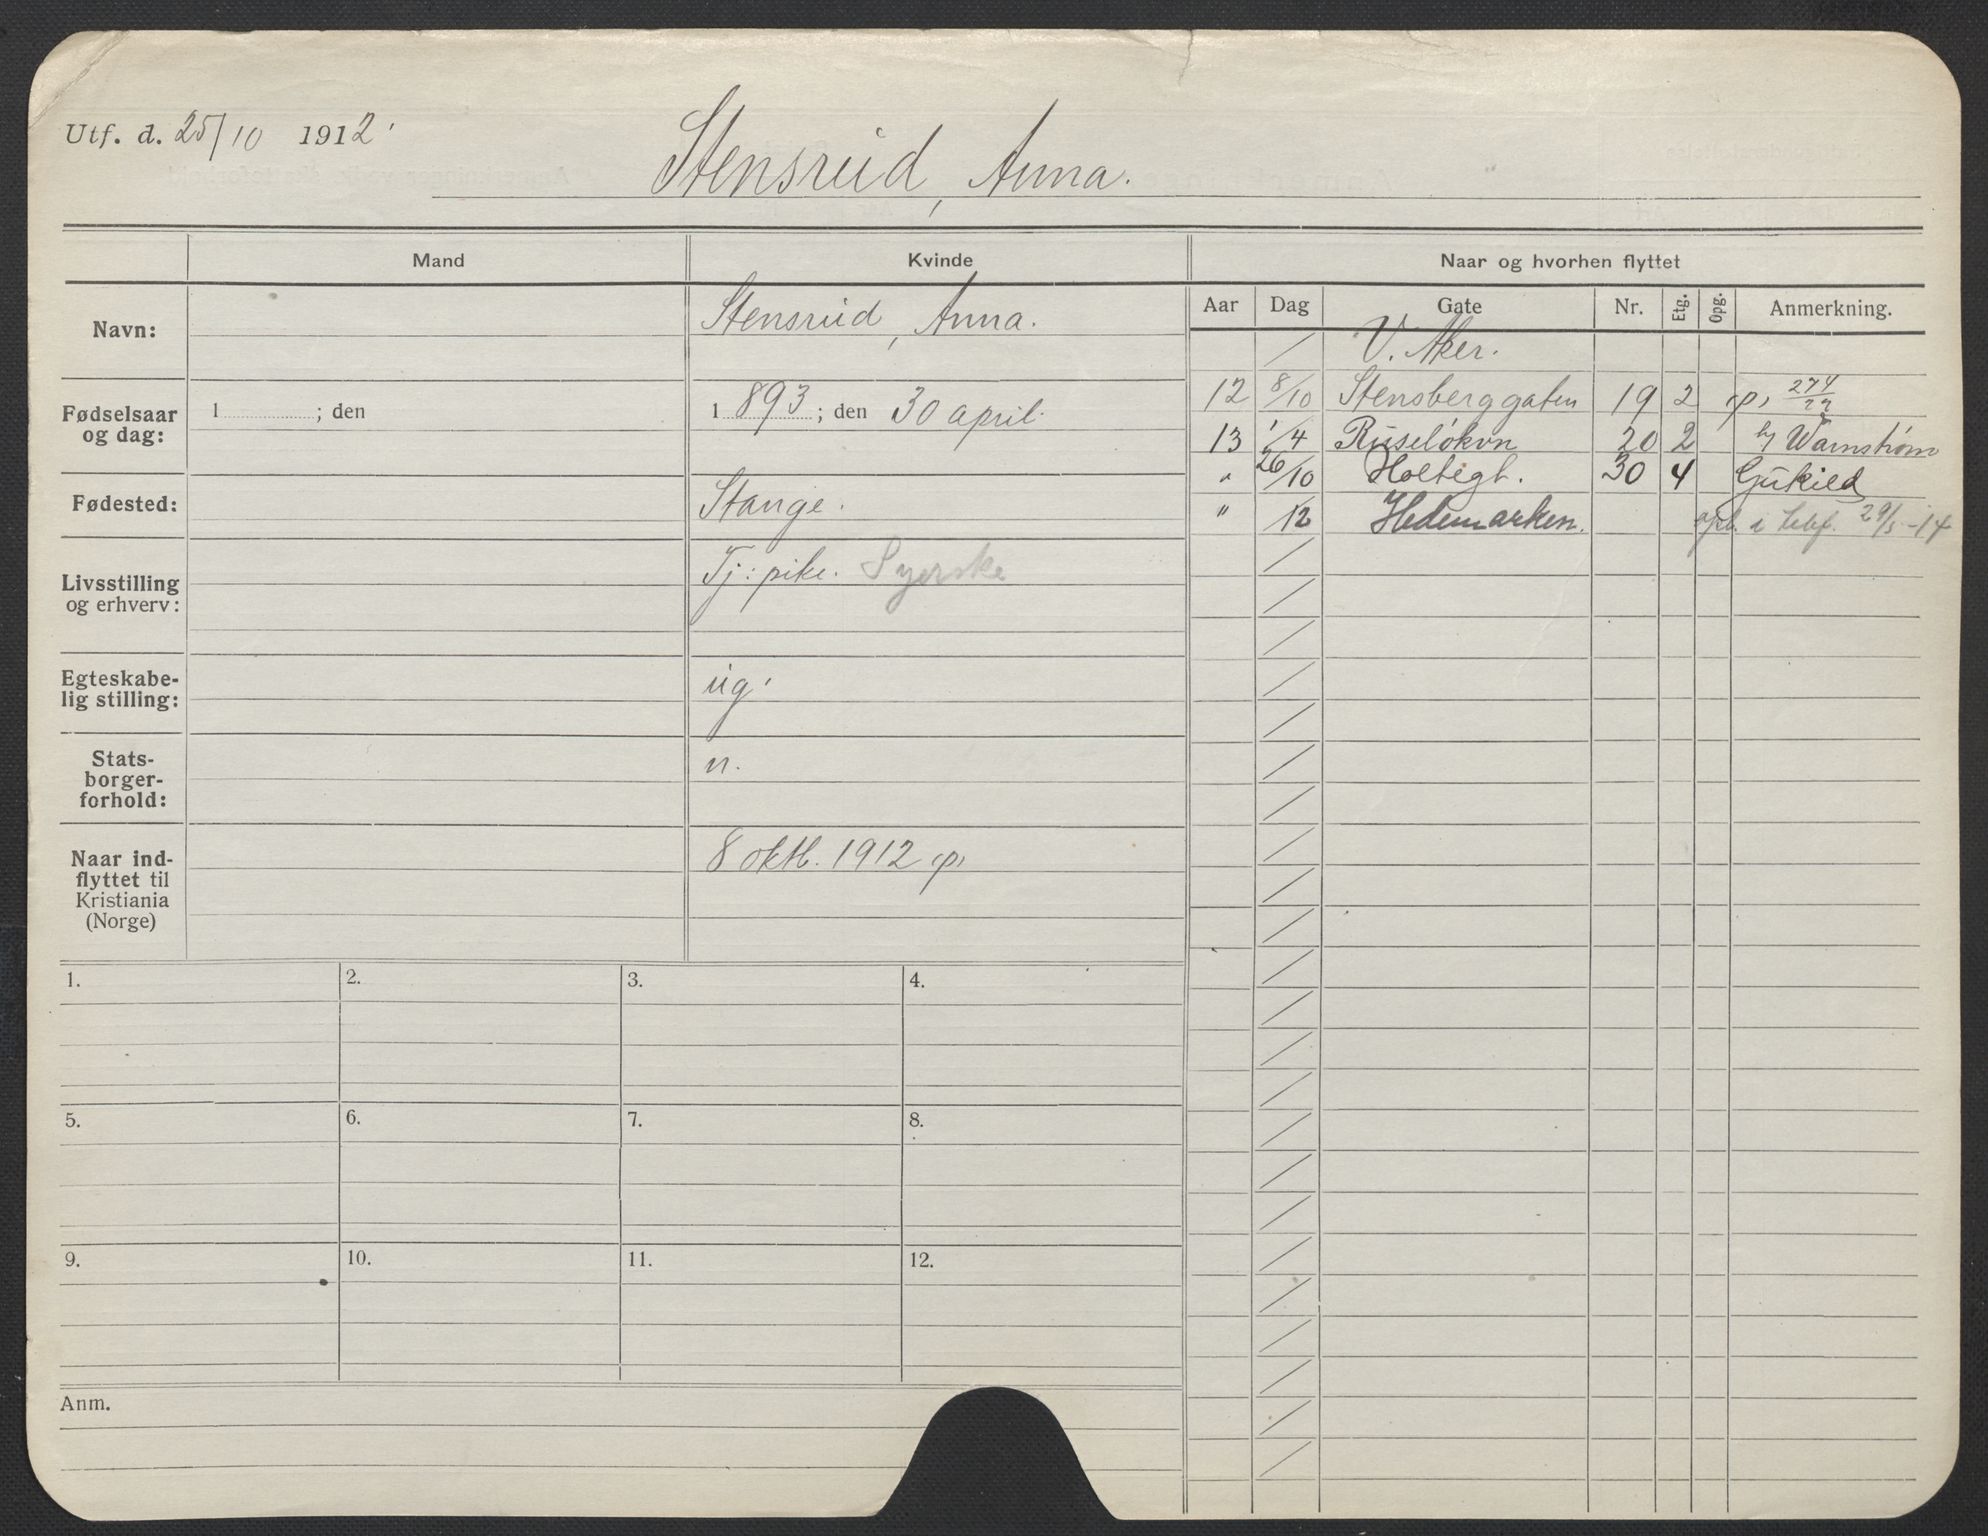 Utf. d. 25/10 1912
Stensrud, Anna.
Mand
Kvinde
Naar og hvorhen flyttet
Navn:
Stensrud, Anna.
Fødselsaar
og dag:
1 ; den
1 893 ; den 30 april.
Fødested:
Stange.
Livsstilling
og erhverv:
Tj: pike. Syerske
Egteskabe-
lig stilling:
ug.
Stats-
borger-
forhold:
n.
Naar ind-
flyttet til
Kristiania
(Norge)
8 oktb. 1912 p
Aar Dag Gate Nr. Etg. Opg. Anmerkning.
/ V. Aker.
12 8/10 Stensberggaten 19 2 p,
13 1/4 Ruseløkvn 20 2 hj Warnstrøm
" 26/10 Holtegt. 30 4 Gukild
" /12 Hedemarken. 29/5-14
1. 2. 3. 4.
5. 6. 7. 8.
9. 10. 11. 12.
Anm.